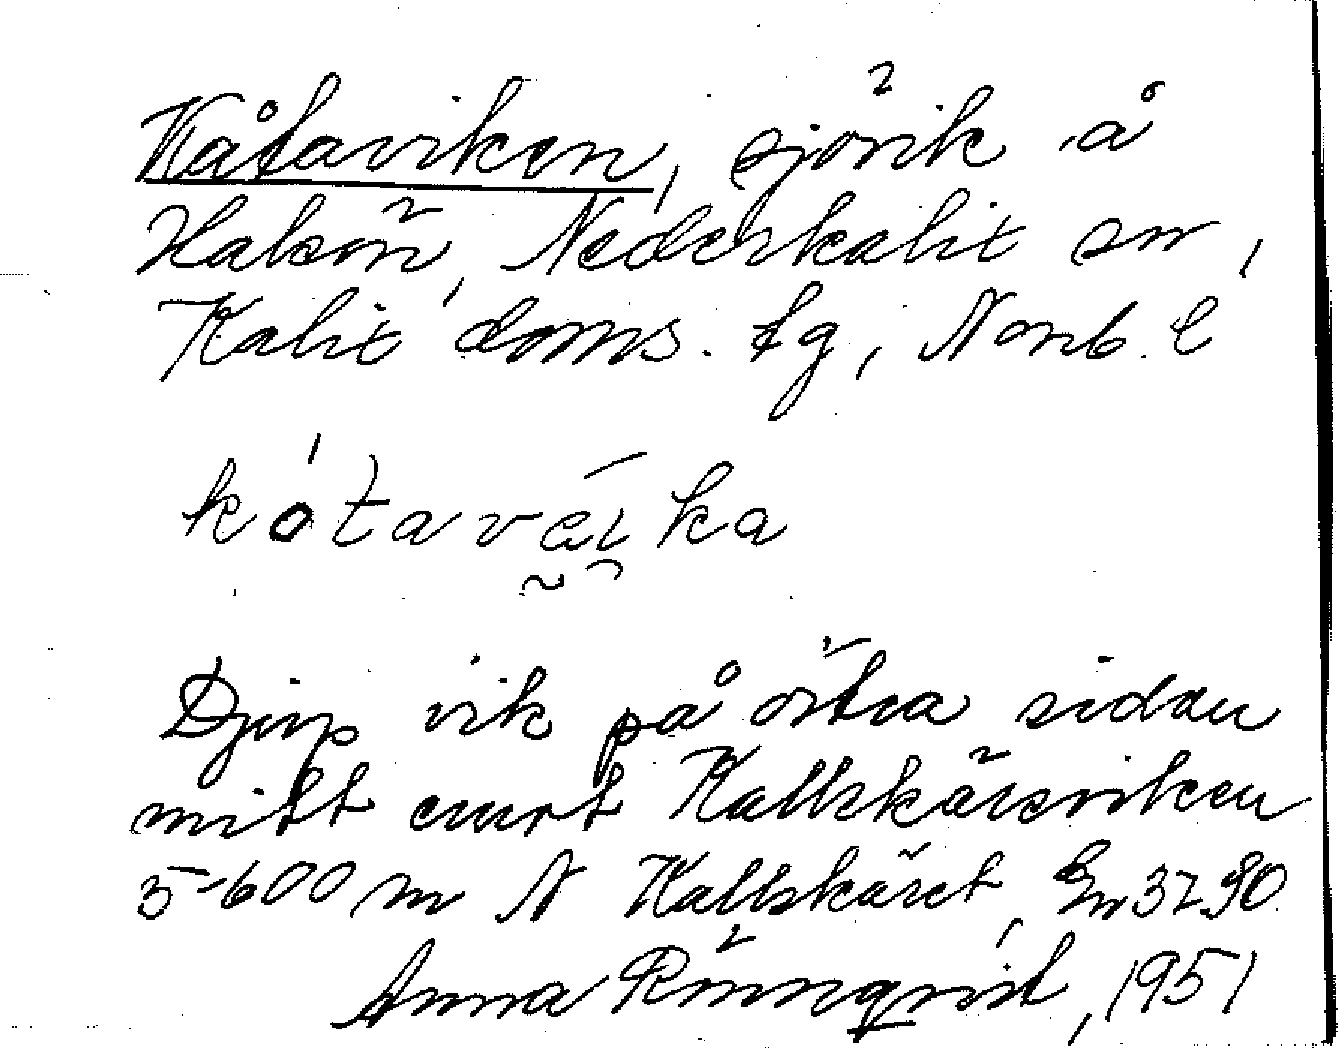 Kåtaviken, sjövik å
Halsön, Nederkalix sn,
Kalix doms. tg, Norrb. l
kótavæ̆i̯ka
Djup vik på östra sidan
mitt emot Kallskärsviken
5-600 m N Kallskäret,
Anna Rönnqvist, 1951